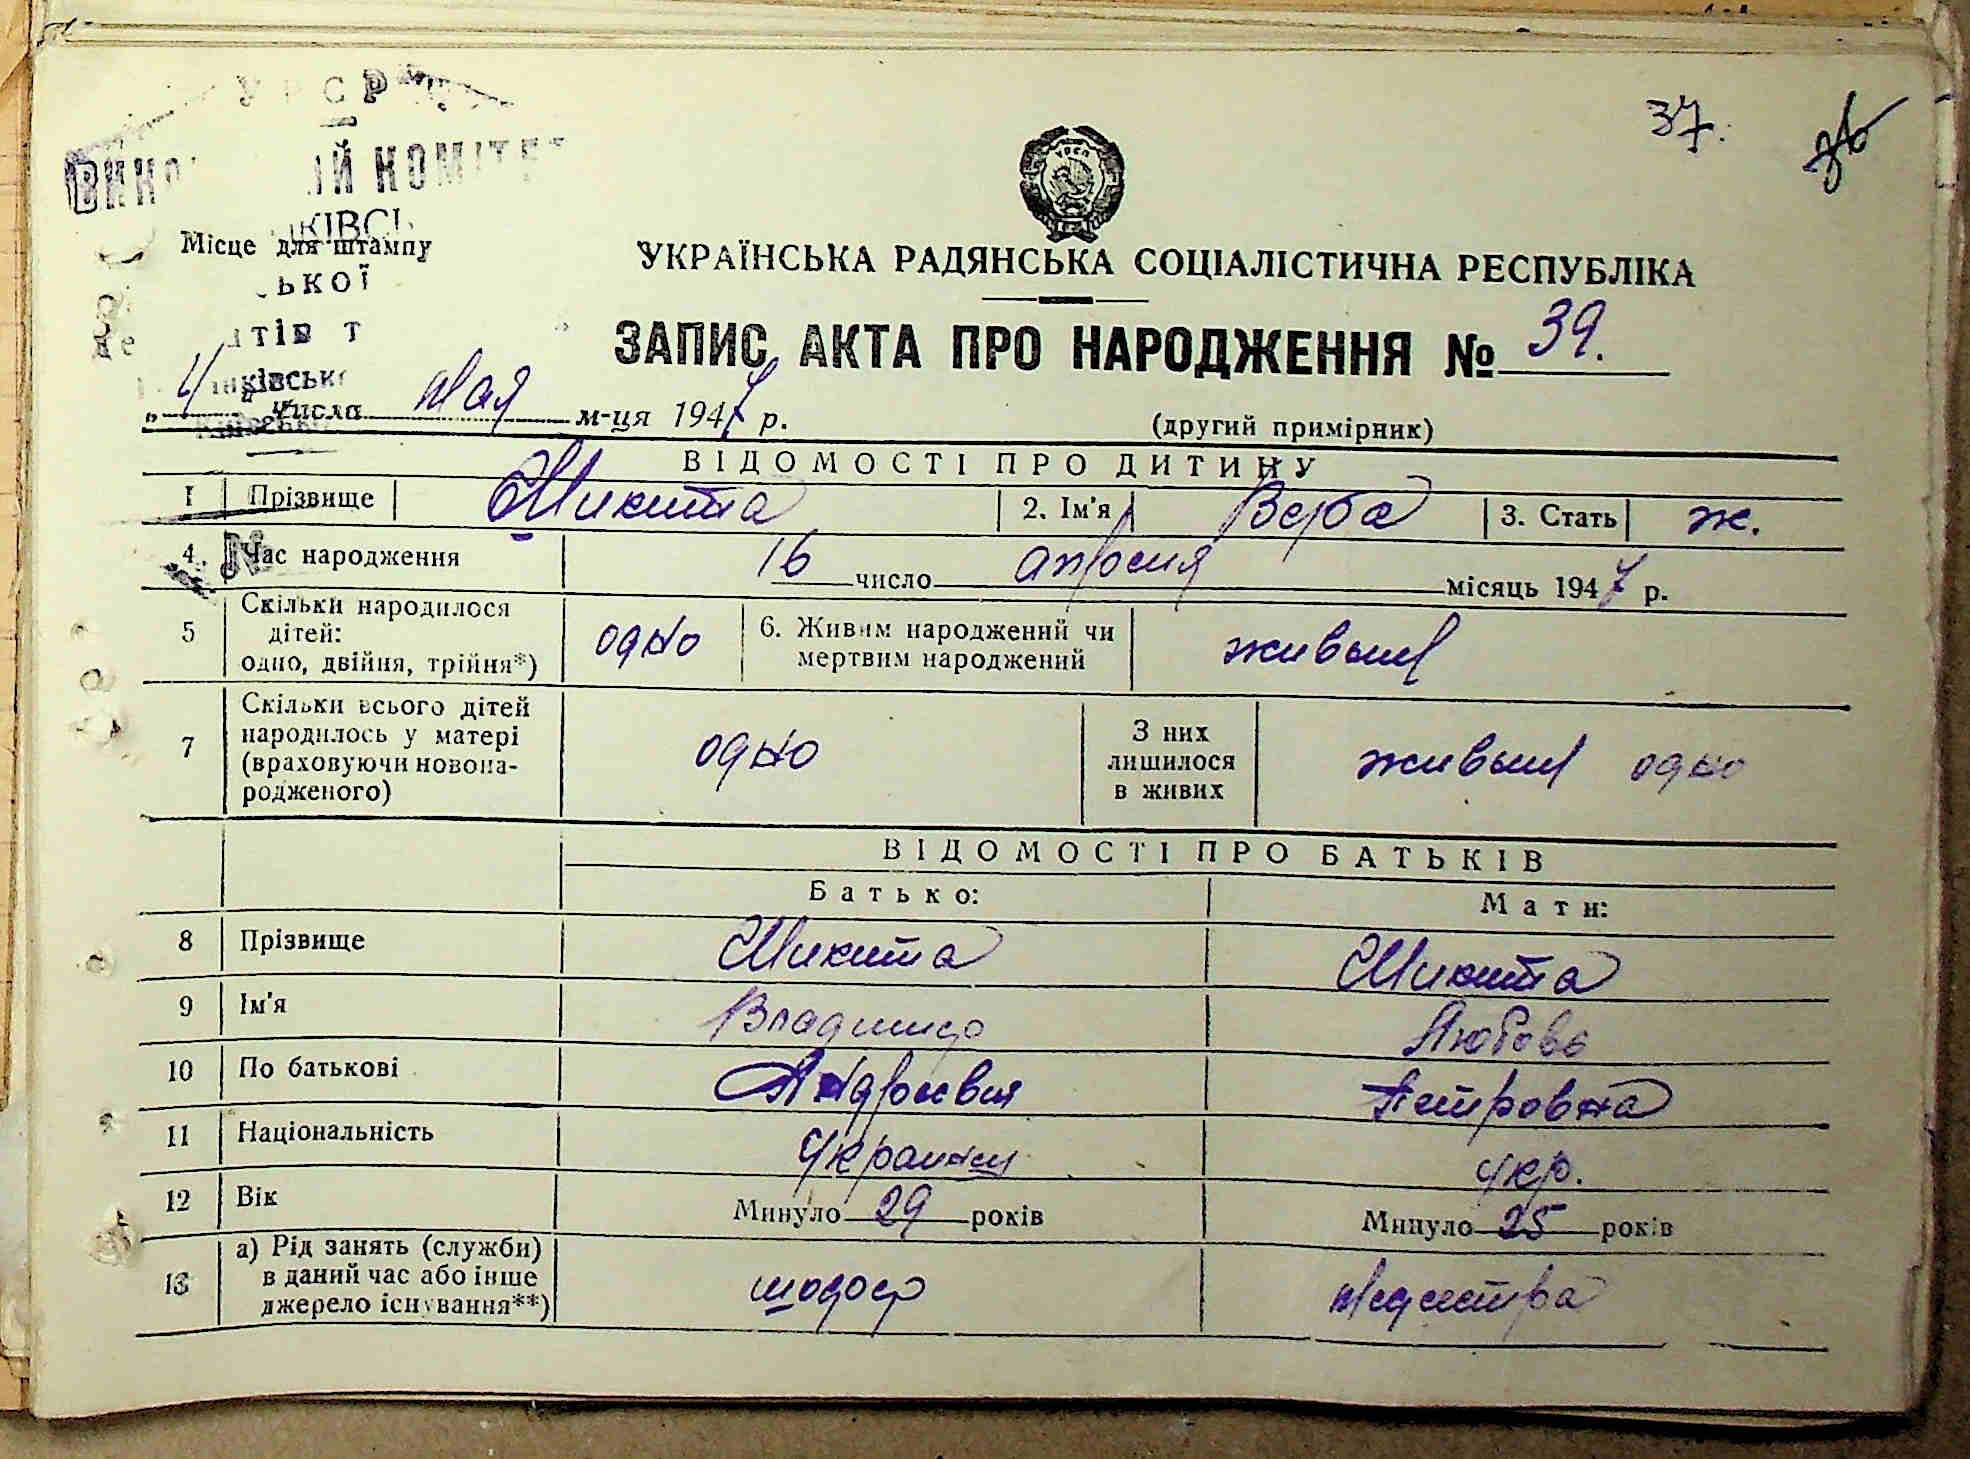 УРСР
ВИКО ИЙ КОМІТЕТ
37.
36
Місце для штампу
ЬКОЇ
УКРАЇНСЬКА РАДЯНСЬКА СОЦІАЛІСТИЧНА РЕСПУБЛІКА
ЗАПИС АКТА ПРО НАРОДЖЕННЯ № 39.
„4" числа мая м-ця 1947 р.
(другий примірник)
ВІДОМОСТІ ПРО ДИТИНУ
1 Прізвище Микита 2. Ім'я Верба 3. Стать ж.
4. Час народження 16 число апреля місяць 1947 р.
5 Скільки народилося дітей: одно, двійня, трійня*) одно 6. Живим народжений чи мертвим народжений живым
7 Скільки всього дітей народилось у матері (враховуючи новонародженого) одно З них лишилося в живих живым одно
ВІДОМОСТІ ПРО БАТЬКІВ
Батько: Мати:
8 Прізвище Микита Микита
9 Ім'я Владимир Любовь
10 По батькові Андреевич Петровна
11 Національність украинец укр.
12 Вік Минуло 29 років Минуло 25 років
13 а) Рід занять (служби) в даний час або інше джерело існування**) шофер медсестра